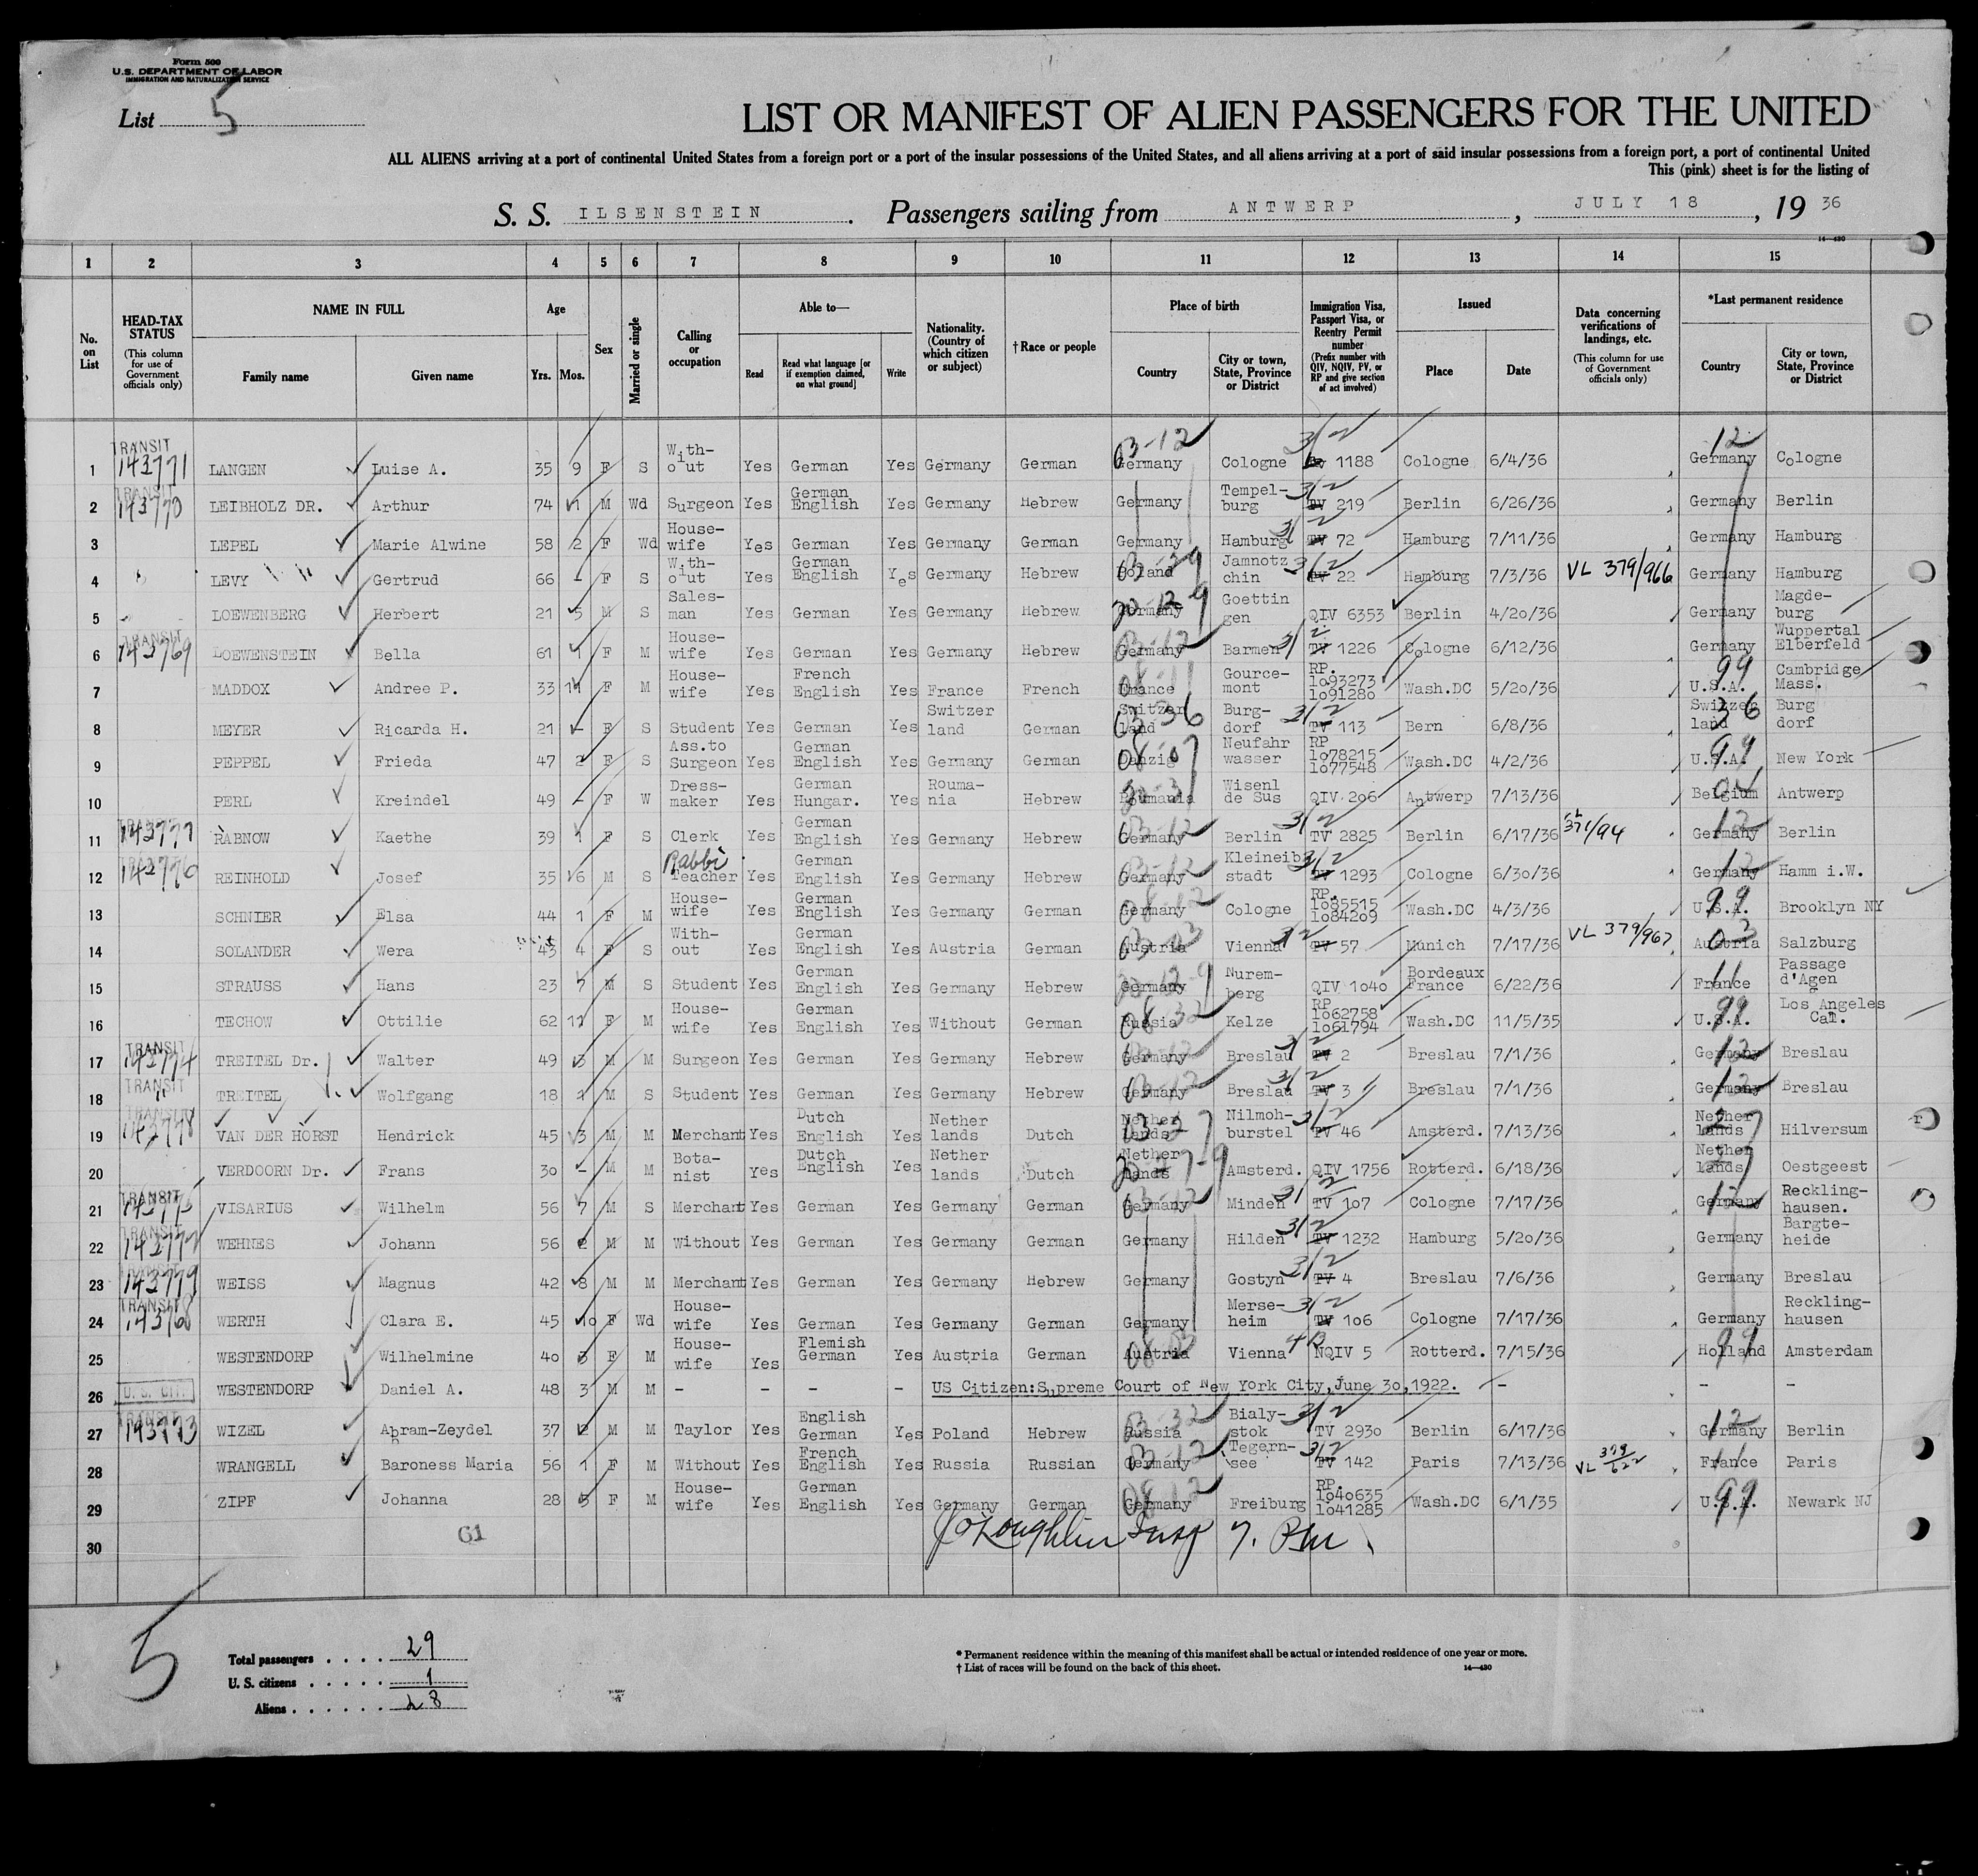 Form 500
U.S. DEPARTMENT OF LABOR
IMMIGRATION AND NATURALIZATION SERVICE
List 5
LIST OR MANIFEST OF ALIEN PASSENGERS FOR THE UNITED
ALL ALIENS arriving at a port of continental United States from a foreign port or a port of the insular possessions of the United States, and all aliens arriving at a port of said insular possessions from a foreign port, a port of continental United
This (pink) sheet is for the listing of
S. S. ILSENSTEIN. Passengers sailing from ANTWERP, JULY 18, 19 36
14—430
1 2 3 4 5 6 7 8 9 10 11 12 13 14 15
No. on List
HEAD-TAX STATUS (This column for use of Government officials only)
NAME IN FULL Family name Given name
Age Yrs. Mos.
Sex
Married or single
Calling or occupation
Able to— Read Read what language [or if exemption claimed, on what ground] Write
Nationality. (Country of which citizen or subject)
†Race or people
Place of birth Country City or town, State, Province or District
Immigration Visa, Passport Visa, or Reentry Permit number (Prefix number with QIV, NQIV, PV, or RP and give section of act involved)
Issued Place Date
Data concerning verifications of landings, etc. (This column for use of Government officials only)
*Last permanent residence Country City or town, State, Province or District
1 TRANSIT 143771 LANGEN Luise A. 35 9 F S With-out Yes German Yes Germany German Germany 03-12 Cologne 3/2 1188 Cologne 6/4/36 Germany 12 Cologne
2 TRANSIT 143770 LEIBHOLZ DR. Arthur 74 1 M Wd Surgeon Yes German English Yes Germany Hebrew Germany Tempel-burg 3/2 TV 219 Berlin 6/26/36 Germany Berlin
3 LEPEL Marie Alwine 58 2 F Wd House-wife Yes German Yes Germany German Germany Hamburg 3/2 TV 72 Hamburg 7/11/36 Germany Hamburg
4 LEVY Gertrud 66 - F S With-out Yes German English Yes Germany Hebrew Poland Jamnotz chin 3/2 TV 22 Hamburg 7/3/36 VL 379/966 Germany Hamburg
5 LOEWENBERG Herbert 21 5 M S Sales-man Yes German Yes Germany Hebrew Germany 20-12-9 Goettin gen QIV 6353 Berlin 4/20/36 Germany Magde-burg
6 TRANSIT 143769 LOEWENSTEIN Bella 61 1 F M House-wife Yes German Yes Germany Hebrew Germany 03-12 Barmen 3/2 TV 1226 Cologne 6/12/36 Germany Wuppertal Elberfeld
7 MADDOX Andree P. 33 11 F M House-wife Yes French English Yes France French France 08-11 Gource-mont RP. 1o93273 1o91280 Wash.DC 5/20/36 U.S.A. 99 Cambridge Mass.
8 MEYER Ricarda H. 21 - F S Student Yes German Yes Switzer land German Switzer land 03-36 Burg-dorf 3/2 TV 113 Bern 6/8/36 Switzer land 36 Burg dorf
9 PEPPEL Frieda 47 2 F S Ass.to Surgeon Yes German English Yes Germany German Danzig 08-07 Neufahr wasser RP 1o78215 1o77548 Wash.DC 4/2/36 U.S.A. 99 New York
10 PERL Kreindel 49 - F W Dress-maker Yes German Hungar. Yes Rouma-nia Hebrew Roumania 20-31 Wisenl de Sus QIV 2o6 Antwerp 7/13/36 Belgium 04 Antwerp
11 TRANSIT 143777 RABNOW Kaethe 39 1 F S Clerk Yes German English Yes Germany Hebrew Germany 03-12 Berlin 3/2 TV 2825 Berlin 6/17/36 371/94 Germany 12 Berlin
12 TRANSIT 143776 REINHOLD Josef 35 6 M S Rabbi Teacher Yes German English Yes Germany Hebrew Germany 03-12 Kleineib stadt 3/2 TV 1293 Cologne 6/30/36 Germany 12 Hamm i.W.
13 SCHNIER Elsa 44 1 F M House-wife Yes German English Yes Germany German Germany 08-12 Cologne RP. 1o85515 1o84209 Wash.DC 4/3/36 U.S.A. 99 Brooklyn NY
14 SOLANDER Wera 43 4 F S With-out Yes German English Yes Austria German Austria 03-03 Vienna 3/2 TV 57 Munich 7/17/36 VL 379/967 Austria 03 Salzburg
15 STRAUSS Hans 23 7 M S Student Yes German English Yes Germany Hebrew Germany 20-12-9 Nurem-berg QIV 1o4o Bordeaux France 6/22/36 France 11 Passage d'Agen
16 TECHOW Ottilie 62 11 F M House-wife Yes German English Yes Without German Russia 08-32 Kelze RP 1o62758 1o61794 Wash.DC 11/5/35 U.S.A. 99 Los Angeles Cal.
17 TRANSIT 143774 TREITEL Dr. Walter 49 3 M M Surgeon Yes German Yes Germany Hebrew Germany 03-12 Breslau 3/2 TV 2 Breslau 7/1/36 Germany 12 Breslau
18 TRANSIT " TREITEL Wolfgang 18 1 M S Student Yes German Yes Germany Hebrew Germany 03-12 Breslau 3/2 TV 3 Breslau 7/1/36 Germany 12 Breslau
19 TRANSIT 143778 VAN DER HORST Hendrick 45 3 M M Merchant Yes Dutch English Yes Nether lands Dutch Nether lands 03-27 Nilmoh-burstel 3/2 TV 46 Amsterd. 7/13/36 Nether lands 27 Hilversum
20 VERDOORN Dr. Frans 3o - M M Bota-nist Yes Dutch English Yes Nether lands Dutch Nether lands 20-27-9 Amsterd. QIV 1756 Rotterd. 6/18/36 Nether lands 27 Oestgeest
21 TRANSIT 143775 VISARIUS Wilhelm 56 7 M S Merchant Yes German Yes Germany German Germany 03-12 Minden 3/2 TV 1o7 Cologne 7/17/36 Germany 12 Reckling-hausen.
22 TRANSIT 143772 WEHNES Johann 56 2 M M Without Yes German Yes Germany German Germany Hilden 3/2 TV 1232 Hamburg 5/20/36 Germany Bargte-heide
23 TRANSIT 143779 WEISS Magnus 42 8 M M Merchant Yes German Yes Germany Hebrew Germany Gostyn 3/2 TV 4 Breslau 7/6/36 Germany Breslau
24 TRANSIT 143768 WERTH Clara E. 45 1o F Wd House-wife Yes German Yes Germany German Germany Merse-heim 3/2 TV 1o6 Cologne 7/17/36 Germany Reckling-hausen
25 WESTENDORP Wilhelmine 4o 3 F M House-wife Yes Flemish German Yes Austria German Austria 08-03 Vienna 4B NQIV 5 Rotterd. 7/15/36 Holland 99 Amsterdam
26 U.S. CIT. WESTENDORP Daniel A. 48 3 M M - - - - US Citizen:Supreme Court of New York City,June 3o,1922. - - -
27 TRANSIT 143773 WIZEL Abram-Zeydel 37 2 M M Taylor Yes English German Yes Poland Hebrew Russia 03-32 Bialy-stok 3/2 TV 293o Berlin 6/17/36 Germany 12 Berlin
28 WRANGELL Baroness Maria 56 1 F M Without Yes French English Yes Russia Russian Germany 03-12 Tegern-see 3/2 TV 142 Paris 7/13/36 VL 379/622 France 11 Paris
29 ZIPF Johanna 28 5 F M House-wife Yes German English Yes Germany German Germany 08-12 Freiburg RP. 1o4o635 1o41285 Wash.DC 6/1/35 U.S.A. 99 Newark NJ
30
G1
5
Total passengers . . . . 29
U. S. citizens . . . . . 1
Aliens . . . . . . 28
* Permanent residence within the meaning of this manifest shall be actual or intended residence of one year or more.
† List of races will be found on the back of this sheet.
14—430